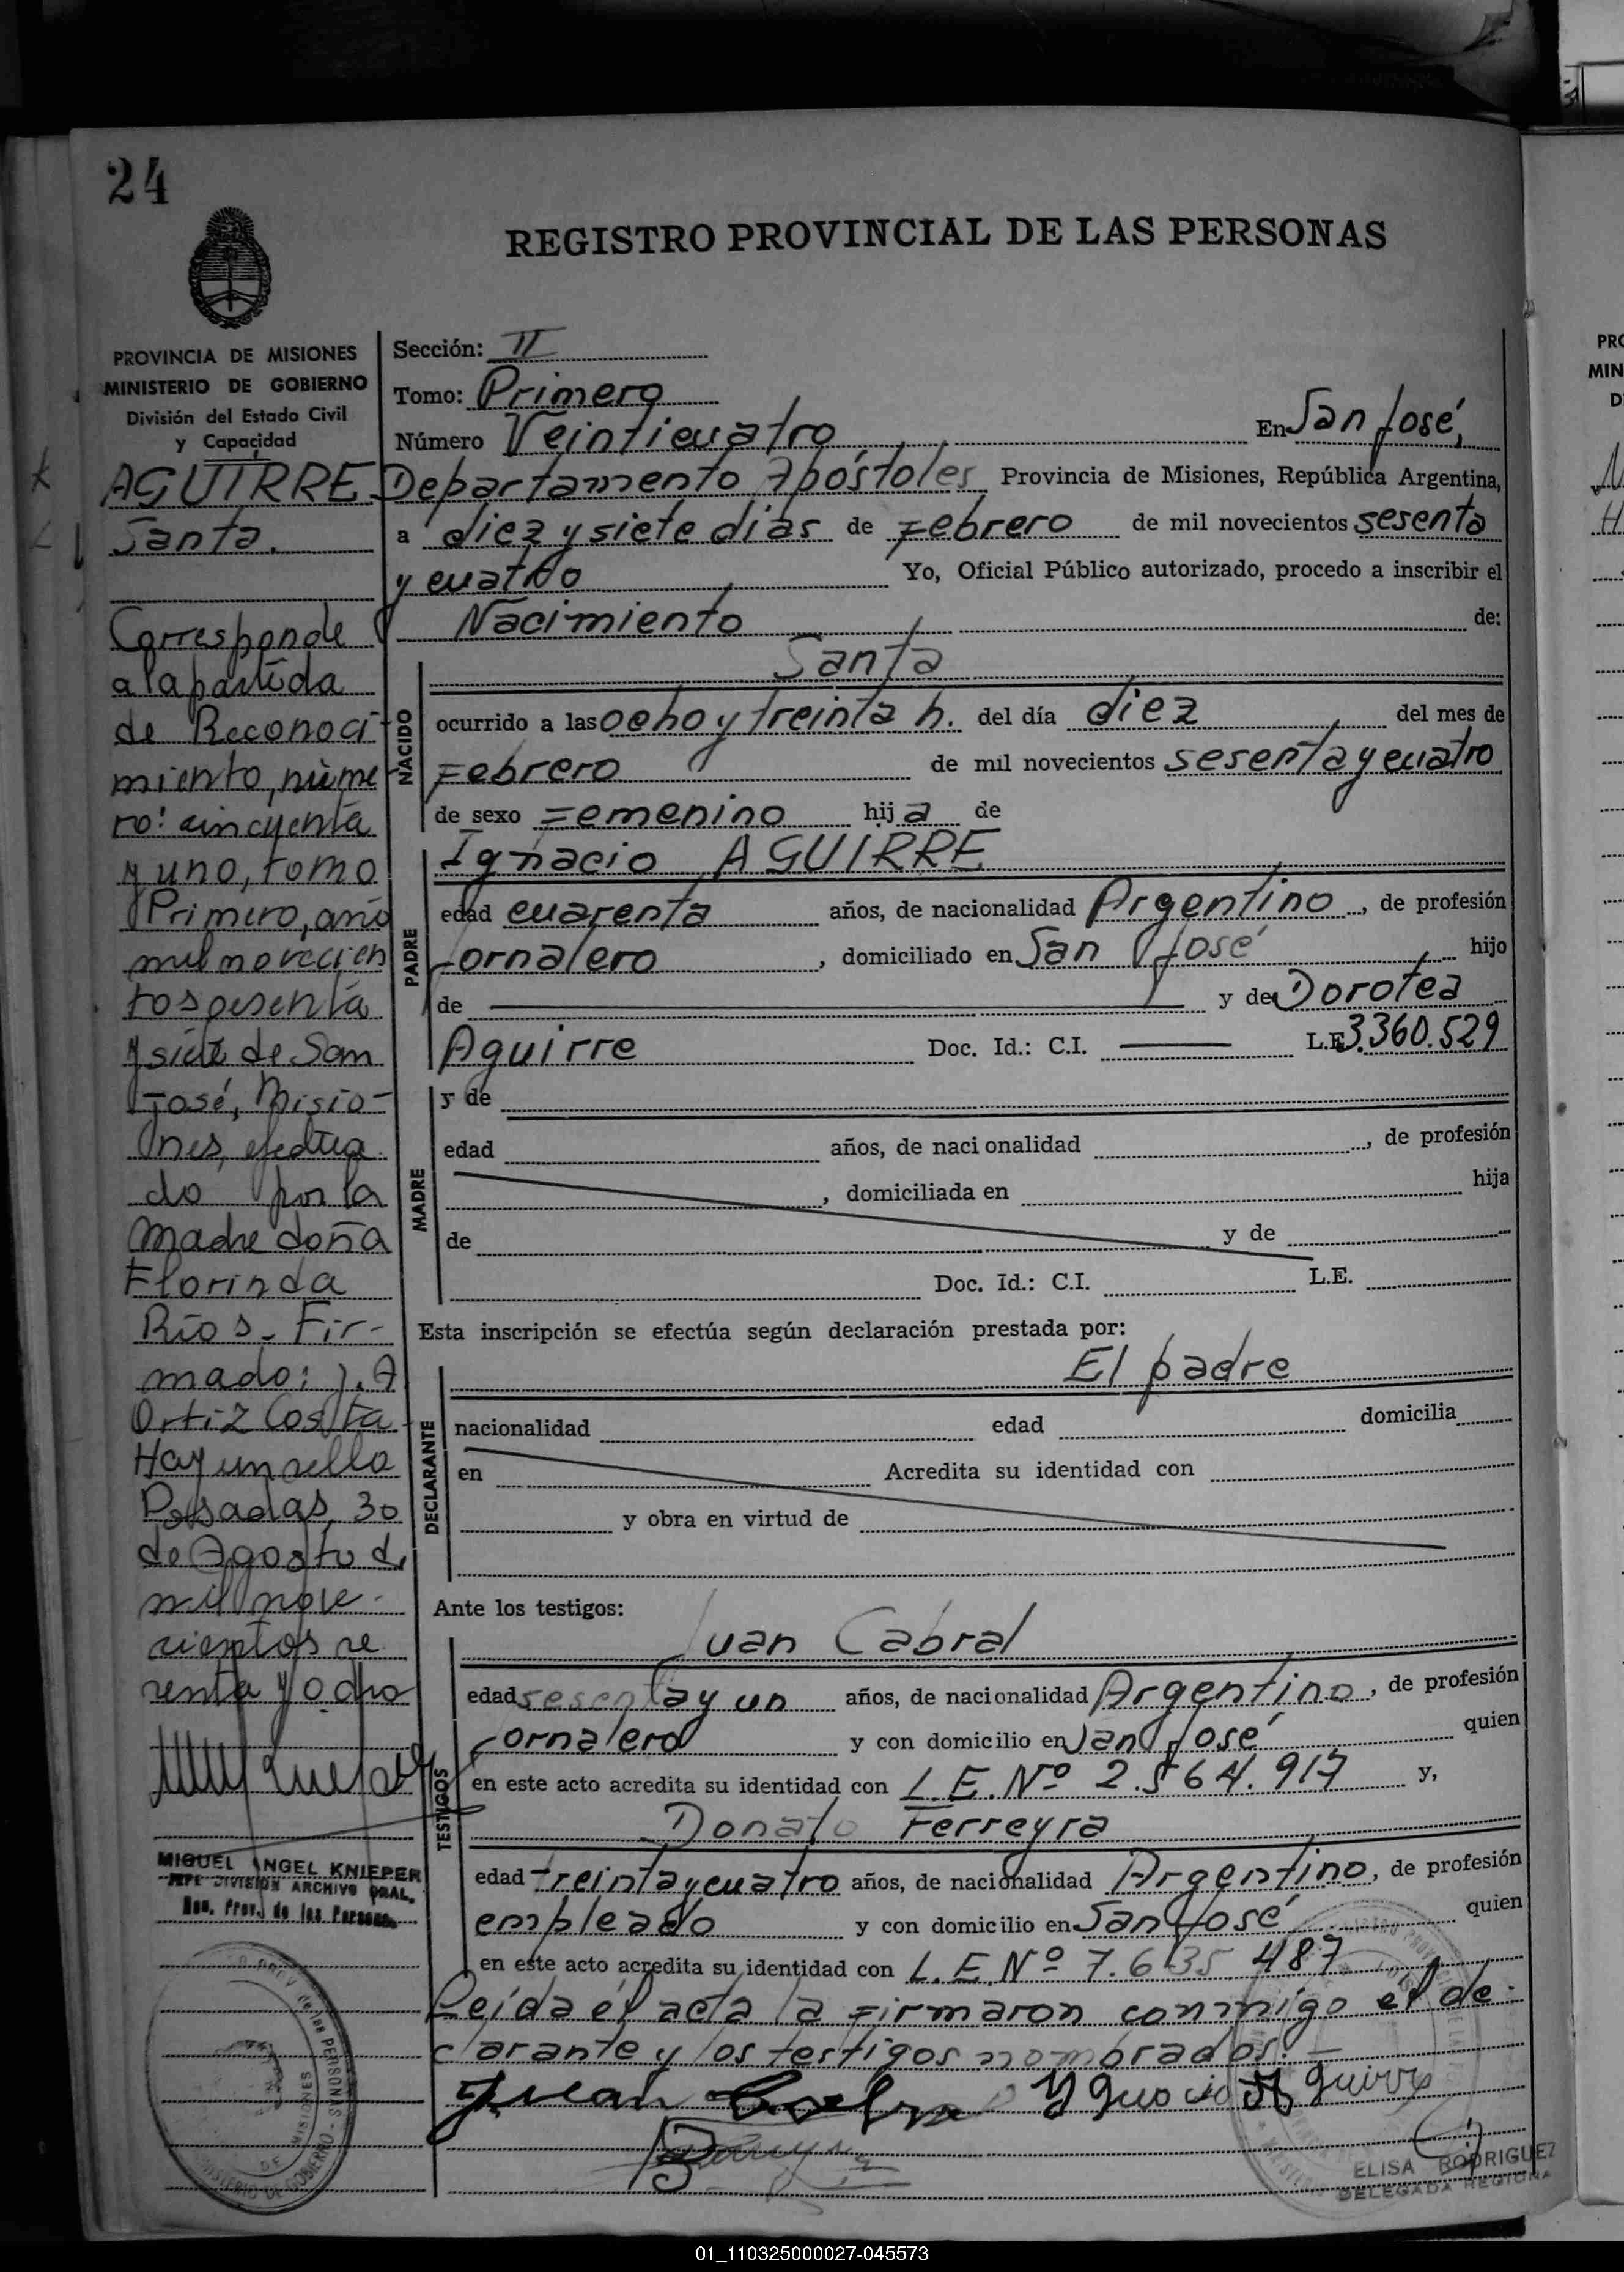 24
REGISTRO PROVINCIAL DE LAS PERSONAS
PROVINCIA DE MISIONES
MINISTERIO DE GOBIERNO
División del Estado Civil
y Capacidad
AGUIRRE
Santa.
Corresponde
a la partida
de Reconoci-
miento, núme
ro: cincuenta
y uno, tomo
Primero, año
mil novecien
tos sesenta
y siete de San
José, Misio-
nes, efectua
do por la
madre doña
Florinda
Ríos. Fir-
mado: J. A
Ortiz Costa
Hay un sello
Posadas, 30
de Agosto de
mil nove-
cientos se
senta y ocho
MIGUEL ANGEL KNIEPER
JEFE DIVISION ARCHIVO GRAL.
Reg. Prov. de las Personas
Sección: II
Tomo: Primero
Número Veinticuatro En San José,
Departamento Apóstoles Provincia de Misiones, República Argentina,
a diez y siete días de Febrero de mil novecientos sesenta
y cuatro Yo, Oficial Público autorizado, procedo a inscribir el
Nacimiento de:
NACIDO
Santa
ocurrido a las ocho y treinta h. del día diez del mes de
Febrero de mil novecientos sesenta y cuatro
de sexo Femenino hija de
PADRE
Ignacio AGUIRRE
edad cuarenta años, de nacionalidad Argentino, de profesión
Jornalero, domiciliado en San José hijo
de y de Dorotea
Aguirre Doc. Id.: C.I. L.E. 3.360.529
MADRE
y de
edad años, de nacionalidad , de profesión
, domiciliada en hija
de y de
Doc. Id.: C.I. L.E.
Esta inscripción se efectúa según declaración prestada por:
DECLARANTE
El padre
nacionalidad edad domicilia
en Acredita su identidad con
y obra en virtud de
Ante los testigos:
TESTIGOS
Juan Cabral
edad sesenta y un años, de nacionalidad Argentino, de profesión
Jornalero y con domicilio en San José quien
en este acto acredita su identidad con L.E. Nº 2.564.917 y,
Donato Ferreyra
edad treinta y cuatro años, de nacionalidad Argentino, de profesión
empleado y con domicilio en San José quien
en este acto acredita su identidad con L.E. Nº 7.635.487
Leída el acta la firmaron conmigo el de-
clarante y los testigos nombrados.-
Juan Cabral Ygnacio Aguirre
ELISA RODRIGUEZ
DELEGADA REGIONAL
01_110325000027-045573